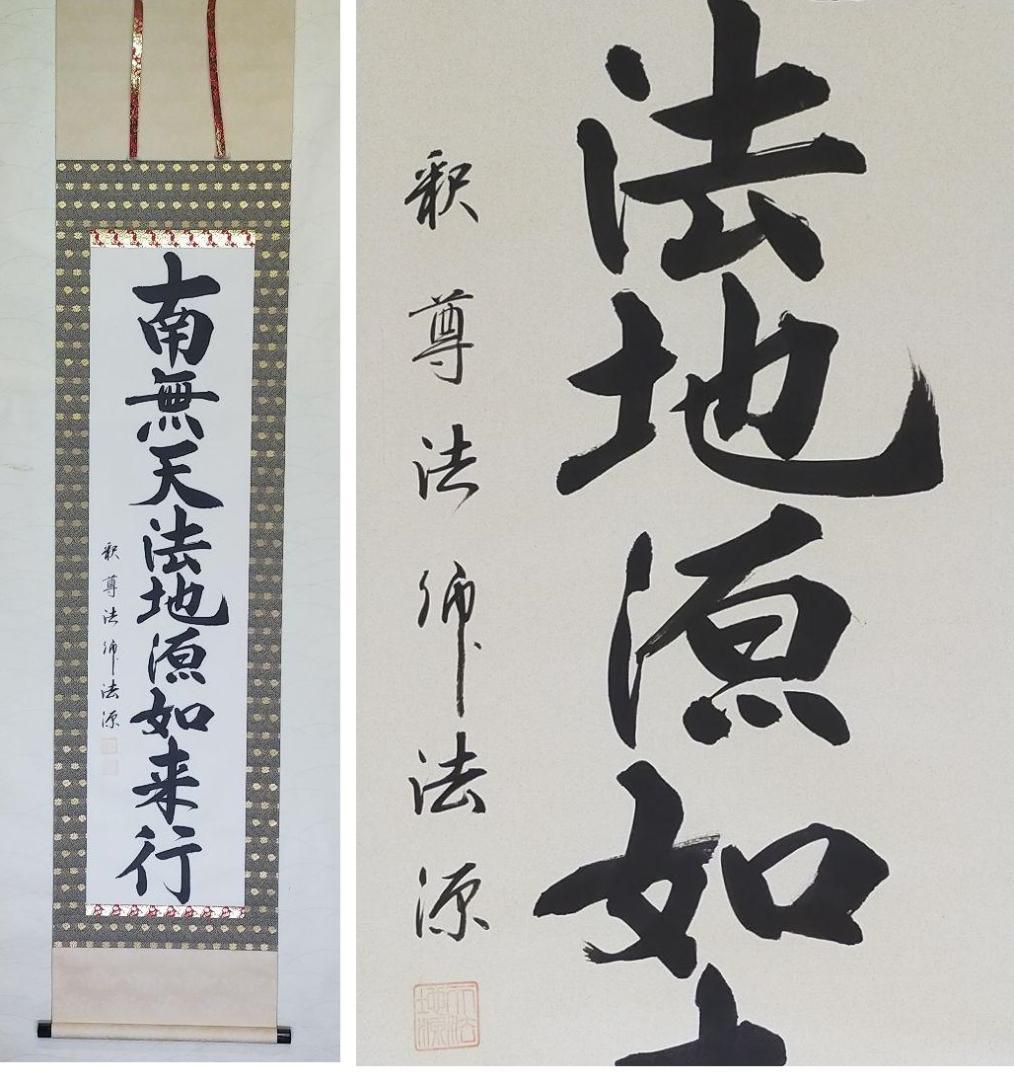 南無天法地源如来行
釈尊法師法源
法地源如来
釈尊法師法源
天法地源